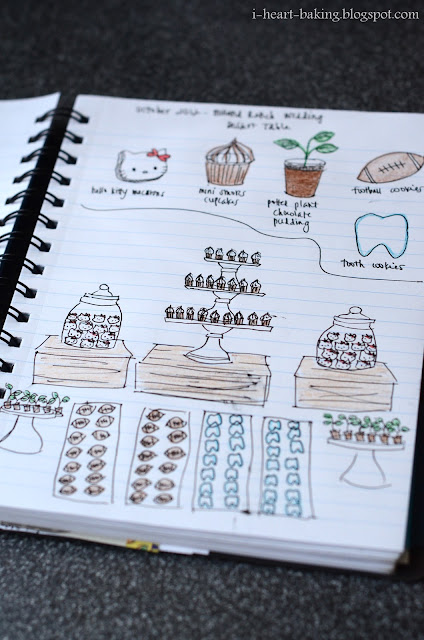 i-heart-baking.blogspot.com
October - Ranch Wedding
Dessert Table
hello kitty macarons
mini s'mores
cupcakes
potted plant
chocolate
pudding
football cookies
tooth cookies